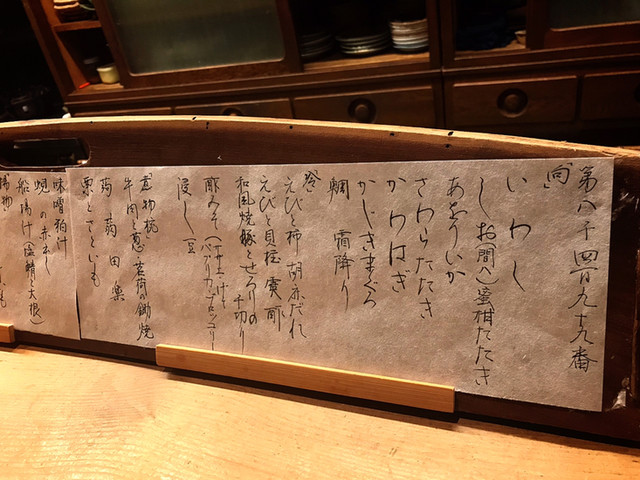 第八千四百九十九番
「向」
いわし
しお聞へ〕蜜柑たたき
あをりいか
さわらたたき
かわはぎ
かじきまぐろ
鯛 霜降り
えびと柿 胡麻だれ
えびと貝柱
和風焼豚とせろりの千切り
酢みそ
浸し 豆
煮物椀
牛肉と葱 茗荷の鋤焼
蒟蒻田楽
栗とさといも
味噌粕汁
蜆の赤だし
船場汁（塩鯖と大根）